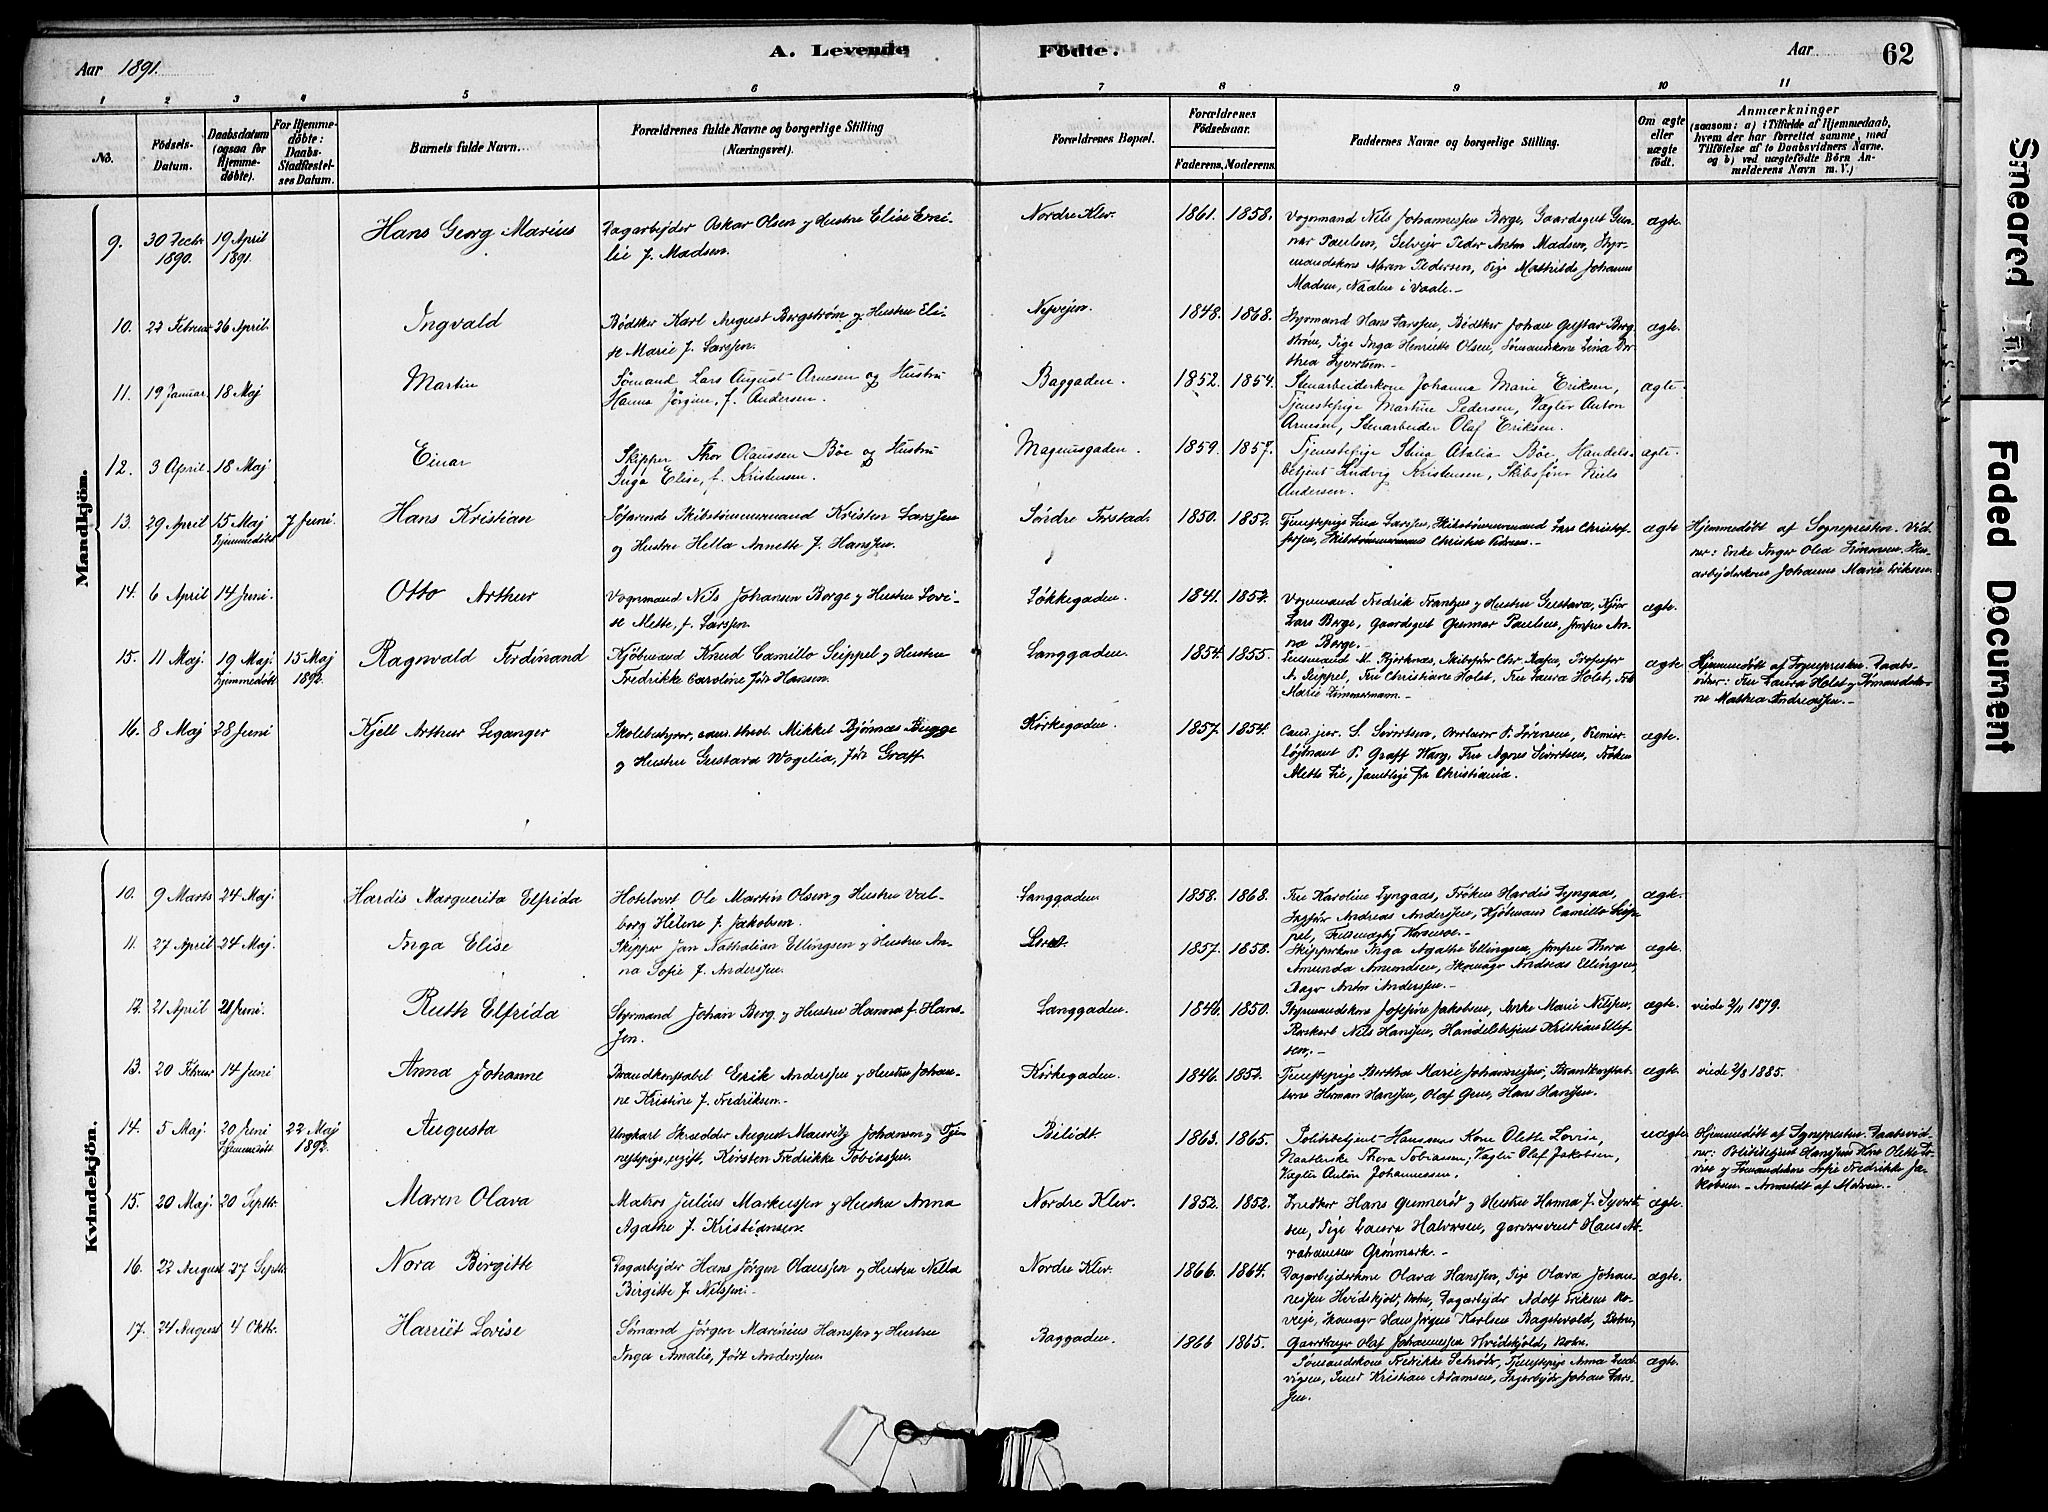 Aar 1891.
A. Levende Födte.
Aar
62
1 2 3 4 5 6 7 8 9 10 11
No.
Födsels-Datum.
Daabsdatum (ogsaa for Hjemmedøbte).
For Hjemmedøbte: Daabs-Stadfæstelses Datum.
Barnets fulde Navn.
Forældrenes fulde Navne og borgerlige Stilling (Næringsvei).
Forældrenes Bopæl.
Forældrenes Födselsaar.
Faderens. Moderens.
Faddernes Navne og borgerlige Stilling.
Om ægte eller uægte født.
Anmærkninger
(saasom: a) i Tilfælde af Hjemmedaab, hvem der har forrettet samme, med Tilföielse af to Daabsvidners Navne, og b) ved uægtefödte Börn Anmelderens Navn m. V.)
Mandkjön.
9. 30 Decbr 1890. 19 April 1891. Hans Georg Marius
Dagarbejder Oskar Olsen og Hustru Elise Emi-
lie f. Madsen.
Nordre Klev. 1861. 1858.
Vognmand Nils Johannessen Borge, Gaardsgut Gun-
nar Paulsen, Selvejer Peder Anton Madsen, Styr-
mandskone Maren Pedersen, Pige Mathilde Johanne
Madsen, i Vaale.-
ægte.
10. 22 Februar 26 April. Ingvald
Bødker Karl August Bergstrøm og Hustru Eli-
se Marie f. Larssen.
Nyvejen. 1848. 1868.
Styrmand Hans Larssen, Bødker Johan Gustav Berg-
strøm, Pige Inga Henriette Olsen, Sømandskone Lina Do-
rthea Syvertsen.
ægte.
11. 19 Januar. 18 Maj Martin
Sømand Lars August Arnesen og Hustru
Hanna Jørgine, f. Andersen.
Baggaden. 1852. 1854.
Stenarbeiderkone Johanna Marie Eriksen,
Tjenestepige Martine Pedersen, Vægter Anton
Arnesen, Stenarbeider Olaf Eriksen.
ægte.
12. 3 April. 18 Maj Einar
Skipper Thor Olaussen Bøe og Hustru
Inga Elise, f. Kristensen.
Magnusgaden. 1859. 1857.
Tjenestepige Stina Atalia Bøe, Handels-
betjent Ludvig Kristensen, Skibsfører Niels
Andersen.
ægte.
13. 29 April 15 Maj hjemmedøbt 7 Juni. Hans Kristian
Søfarende Skibstømmermand Kristen Larssen
og Hustru Hella Annette f. Hanssen.
Søndre Torstad. 1850. 1852.
Tjenestepige Lina Larssen, Skibstømmermand Lars Christof-
fersen, Skibstømmermand Christen Pedersen.-
ægte
Hjemmedøbt af Sognepresten. Vid-
ner: Enke Inger Olea Simonsen,
arbejderkone Johanne Marie Eriksen.
14. 6 April 14 Juni. Otto Arthur
Vognmand Nils Johansen Borge og Hustru Lovi-
se Mette, f. Larssen.
Løkkegaden. 1841. 1852.
Vognmand Fredrik Frantzen og Hustru Gustava,
Lars Borge, Gaardsgut Gunnar Paulsen, Jomfru An-
na Borge.
ægte.
15. 11 Maj. 19 Maj. hjemmedøbt 15 Maj 1892. Ragnvald Ferdinand
Kjøbmand Knud Camillo Seippel og Hustru
Fredrikke Caroline født Hansen.
Langgaden. 1854. 1855.
Lensmand M. Bjerknes, Skibsfører Chr. Professor
A. Seippel, Fru Christiane Holst, Fru Laura Holst, Frk.
Marie Zimmermann.-
ægte
Hjemmedøbt af Sognepresten. Daabs-
vidner: Fru Laura Holst og Sømandsko-
ne Mathea Andreassen.-
16. 8 Maj 28 Juni Kjell Arthur Leganger
Skolebestyrer, cand. theol. Mikkel Bjønnes Bugge
og Hustru Gustava Wogelia, født Graff.
Kirkegaden. 1857. 1854.
Cand. jur. S. Sivertsen, Overlærer P. Sørensen, Premier-
løjtnant P. Graff Wang, Fru Agnes Sivertsen, Frøken
Mette Lie, samtlige fra Christiania.
ægte.
Kvindekjön.
10. 9 Marts 24 Maj. Hardis Marguerita Elfrida
Hotelvert Ole Martin Olsen og Hustru Val-
borg Helene f. Jakobsen.
Langgaden 1858. 1868.
Fru Karoline Lyngaas, Frøken Hardis Lyngaas,
Andreas Anderssen, Kjøbmand Camillo Seip-
pel,
ægte.
11. 27 April 24 Maj. Inga Elise
Skipper Jan Nathalian Ellingsen og Hustru An-
na Sofie f. Anderssen.
1857. 1858.
Skipperkone Inga Agathe Ellingsen, Jomfru Thora
Amunda Amundsen, Skomager Andreas Ellingsen,
Bager Anton Anderssen.
ægte.
12. 21 April 21 Juni. Ruth Elfrida
Styrmand Johan Berg og Hustru Hanna f. Hans-
sen.
Langgaden. 1846. 1850.
Styrmandskone Josefine Jakobsen, Enke Marie Nilssen,
Nils Hanssen, Handelsbetjent Kristian Ellef-
sen.-
ægte.
viede 2/11 1879.
13. 20 Febuar 14 Juni Anna Johanne
Brandkonstabel Erik Anderssen og Hustru Johan-
ne Kristine f. Fredriksen.-
Kirkegaden. 1846. 1852.
Tjenestepige Bertha Marie Johannessen, Brandkonstab-
lerne Herman Hanssen, Olaf Gren, Hans Hanssen.
ægte.
viede 2/8 1885.
14. 5 Maj. 20 Juni hjemmedøbt 22 Maj 1892. Augusta
Ungkarl Skrædder August Mauritz Johansen og Tje-
nestepige, ugift, Kirsten Fredrikke Tobiassen.
Bilidt. 1863. 1865.
Politibetjent Hanssens Kone Olette Lovise,
Naatlerske Thora Tobiassen, Vægter Olaf Jakobsen,
Vægter Anton Johannessen.
uægte
Hjemmedøbt af Sognepresten. Daabsvid-
ner: Politibetjent Hanssens Kone Olette Lo-
vise og Sømandskone Sofie Fredrikke Ja-
kobsen.- Anmeldt af Moderen.-
15. 20 Maj. 20 Septbr. Maren Olava
Matros Julius Markussen og Hustru Anna
Agathe f. Kristiansen.
Nordre Klev. 1852. 1852.
Snedker Hans Gunnerød og Hustru Hanna f. Syvert-
sen, Pige Laura Halvorsen, Garversvend Hans A-
Grønmark.-
ægte.
16. 22 August 27 Septbr. Nora Birgitte
Dagarbejder Hans Jørgen Olaussen og Hustru Nella
Birgitte f. Nilssen.-
Nordre Klev. 1866. 1864.
Dagarbejderkone Olava Hanssen, Pige Olava Johan-
nessen Hvidskjold, Botne, Dagarbejder Adolf Eriksen Ko-
veje, Skomager Hans Jørgen Karlsen Bagstevold, Botne,
Gaardbruger Olaf Johannessen Hvidskjold, Botne.
ægte.
17. 24 August 4 Oktbr. Harriet Lovise
Sømand Jørgen Marinius Hanssen og Hustru
Inga Amalie, født Anderssen.
Baggaden. 1866 1865.
Sømandskone Fredrikke Schrøder, Tjenestepige Anna Lud-
vigsen, Smed Kristian Adamsen, Johan Lars-
sen.
ægte.
Smeared Ink
Faded Document